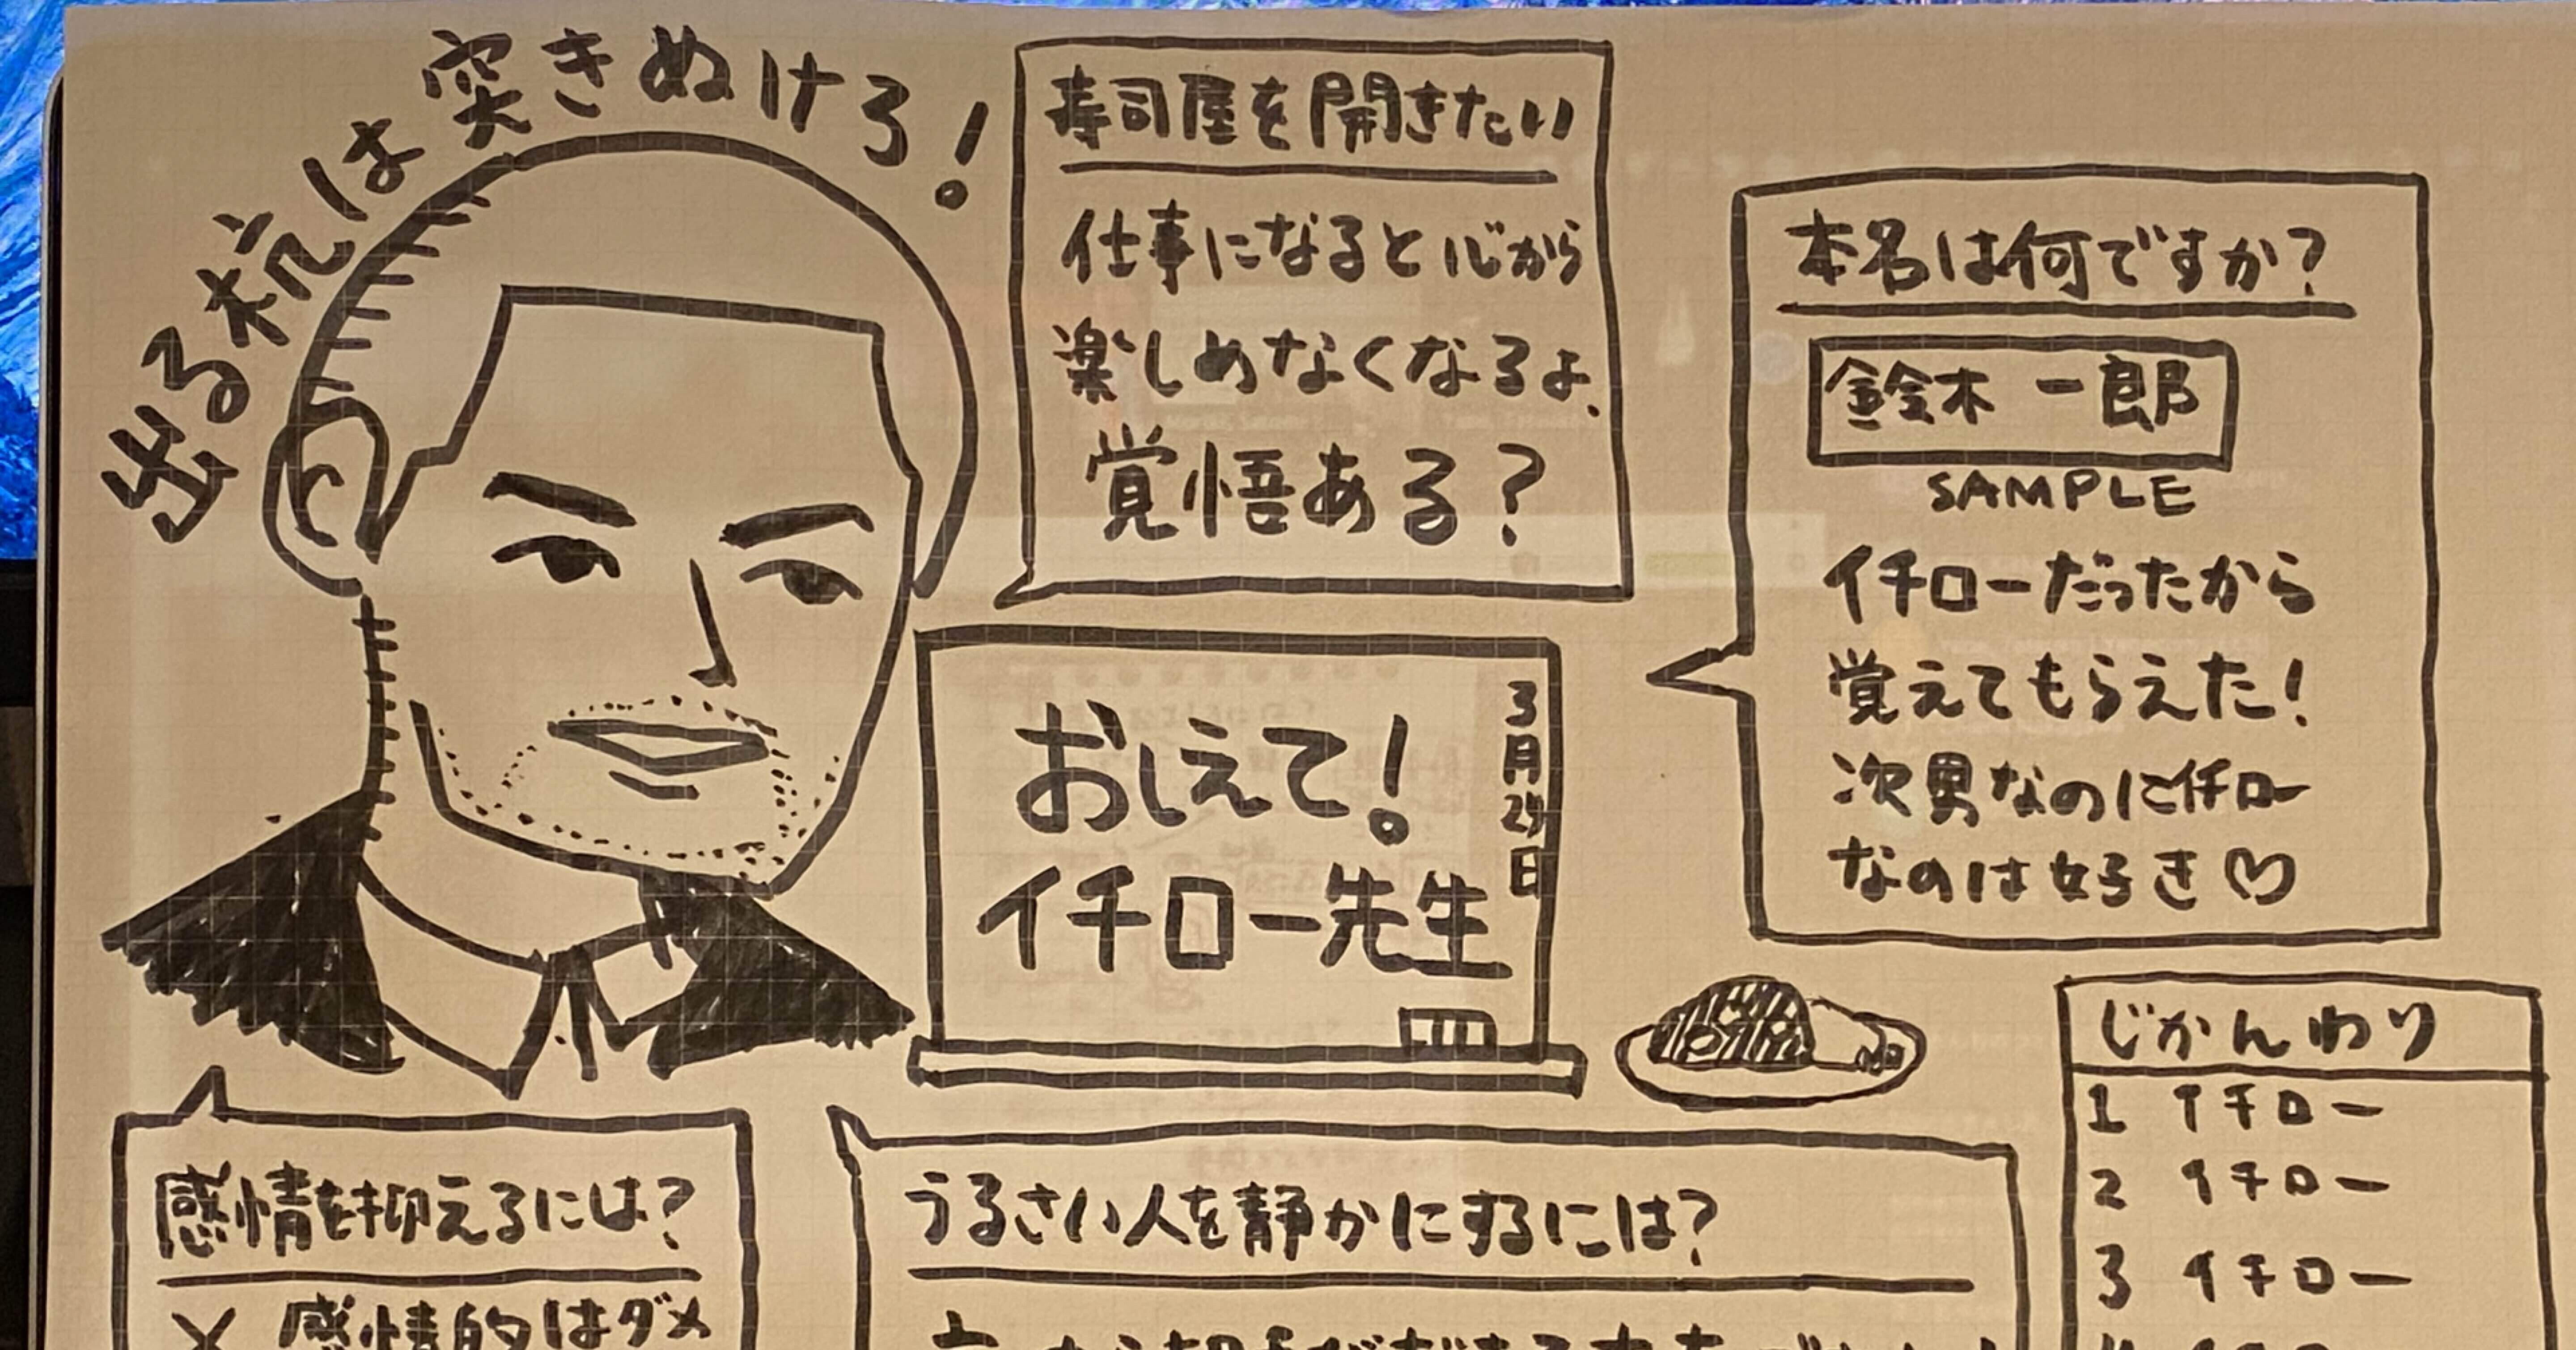 出る杭は突きぬけろ!
寿司屋を開きたい
仕事になると心から
楽しめなくなるよ、
覚悟ある?
本名は何ですか?
鈴木 一郎
SAMPLE
イチローだったから
覚えてもらえた!
次男なのにイチロー
なのは好き♡
おしえて!
イチロー先生
3月24日
じかんわり
1 イチロー
2 イチロー
3 イチロー
感情を抑えるには?
× 感情的はダメ
うるさい人を静かにするには?